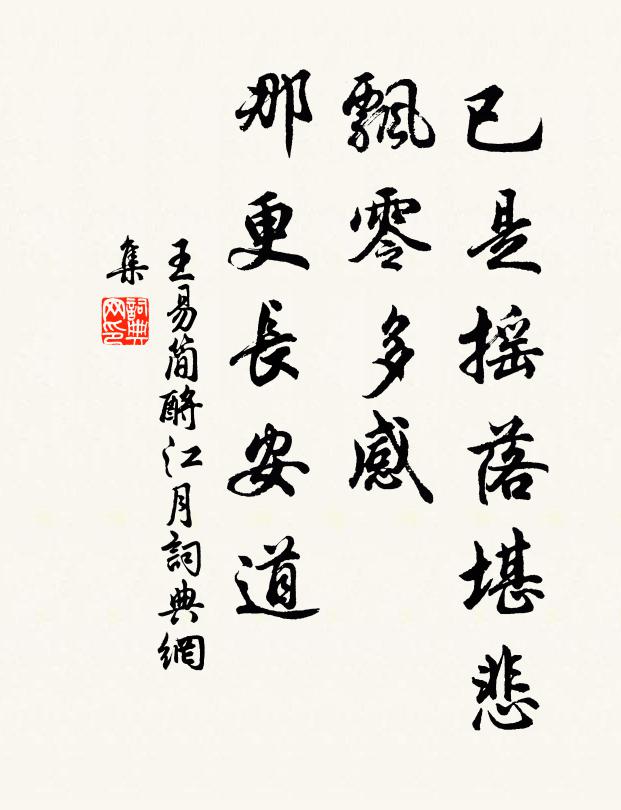 已是摇落堪悲
飄零多感
那更長安道
王易简酹江月詞典網
集
詞典
网印